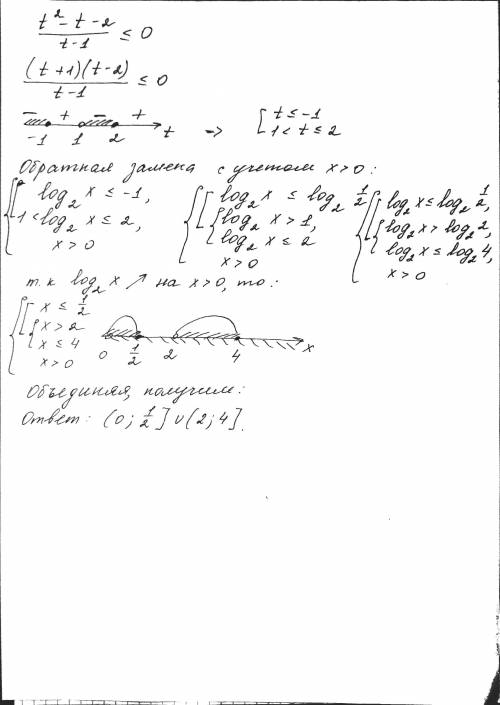 t² - t - 2 / t - 1 ≤ 0
(t + 1)(t - 2) / t - 1 ≤ 0
- + - + t => [ t ≤ -1
-1 1 2 1 < t ≤ 2
Обратная замена с учетом x > 0:
{ [ log₂ x ≤ -1, { [ log₂ x ≤ log₂ 1/2 { [ log₂ x ≤ log₂ 1/2,
1 < log₂ x ≤ 2, { log₂ x > 1, { log₂ x > log₂ 2,
x > 0 log₂ x ≤ 2 log₂ x ≤ log₂ 4,
x > 0 x > 0
т. к log₂ x ↗ на x > 0, то:
{ [ x ≤ 1/2
{ x > 2
x ≤ 4 x
x > 0 0 1/2 2 4
Объединяя, получим:
Ответ: (0; 1/2] ∪ (2; 4].